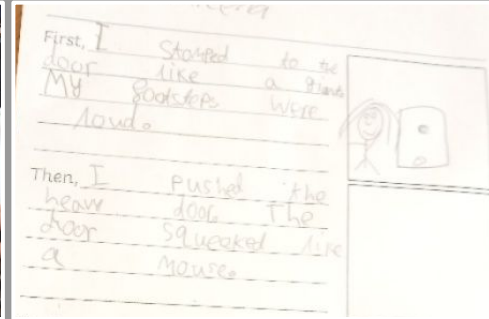 First, I Stomped to the
door like a giant.
My footsteps were
loud.
Then, I pushed the
heavy door The
door squeaked like
a mouse.